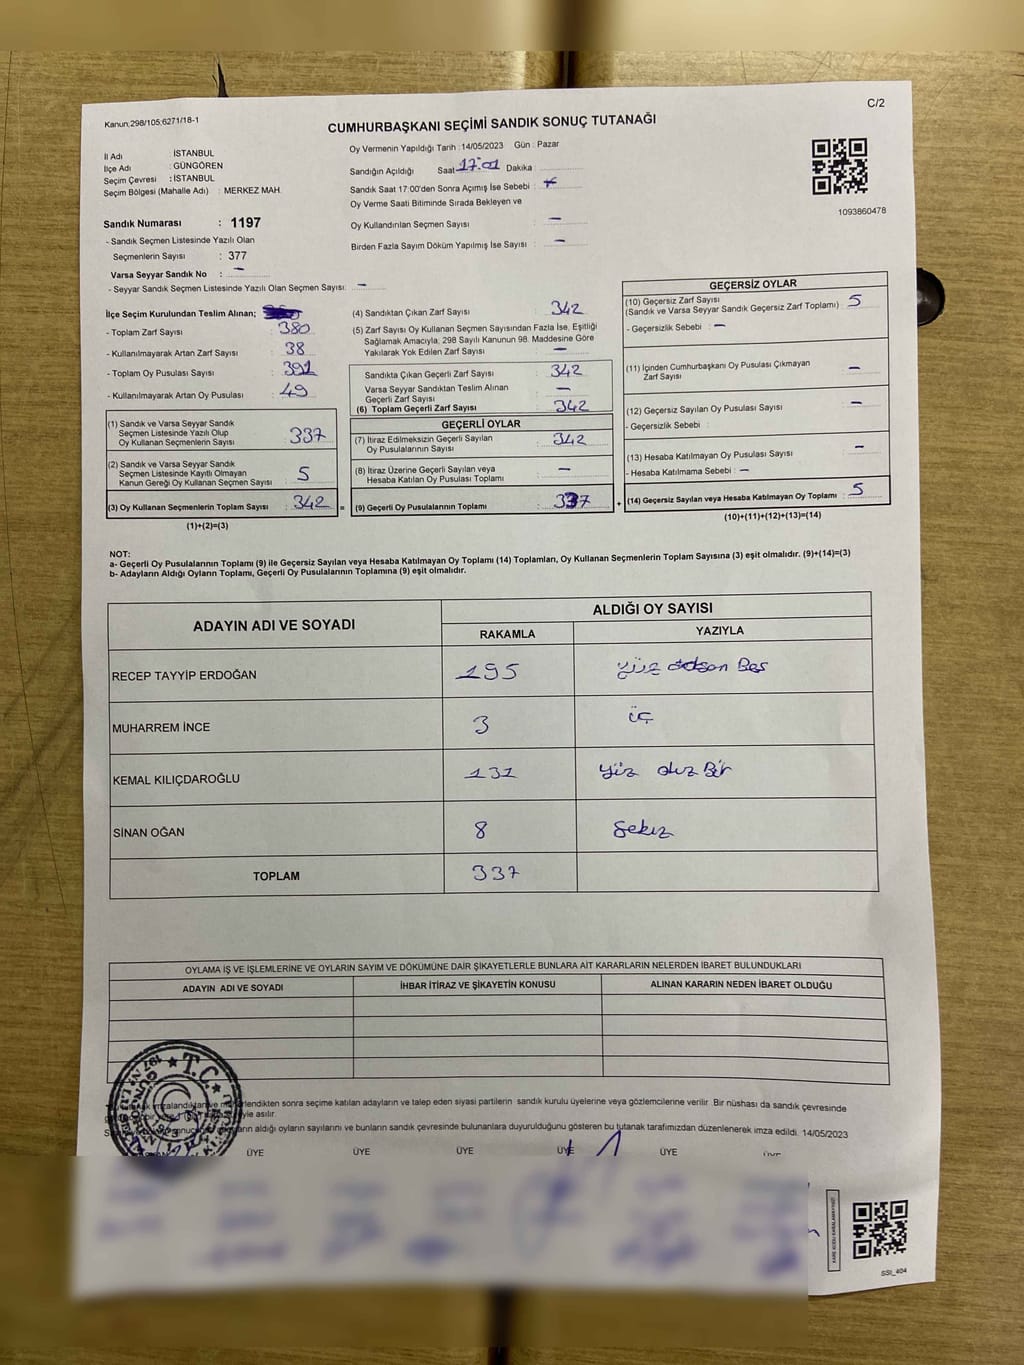 Kanun;298/105;6271/18-1
C/2
CUMHURBAŞKANI SEÇİMİ SANDIK SONUÇ TUTANAĞI
İl Adı : İSTANBUL
İlçe Adı : GÜNGÖREN
Seçim Çevresi : İSTANBUL
Seçim Bölgesi (Mahalle Adı) : MERKEZ MAH.
Sandık Numarası : 1197
- Sandık Seçmen Listesinde Yazılı Olan
Seçmenlerin Sayısı : 377
Varsa Seyyar Sandık No : –
- Seyyar Sandık Seçmen Listesinde Yazılı Olan Seçmen Sayısı: –
Oy Vermenin Yapıldığı Tarih : 14/05/2023 Gün : Pazar
Sandığın Açıldığı Saat 17:01 Dakika :
Sandık Saat 17:00'den Sonra Açımış İse Sebebi :
Oy Verme Saati Bitiminde Sırada Bekleyen ve
Oy Kullandırılan Seçmen Sayısı : –
Birden Fazla Sayım Döküm Yapılmış İse Sayısı : –
1093860478
İlçe Seçim Kurulundan Teslim Alınan;
- Toplam Zarf Sayısı : 380
- Kullanılmayarak Artan Zarf Sayısı : 38
- Toplam Oy Pusulası Sayısı : 391
- Kullanılmayarak Artan Oy Pusulası : 49
(1) Sandık ve Varsa Seyyar Sandık
Seçmen Listesinde Yazılı Olup
Oy Kullanan Seçmenlerin Sayısı : 337
(2) Sandık ve Varsa Seyyar Sandık
Seçmen Listesinde Kayıtlı Olmayan
Kanun Gereği Oy Kullanan Seçmen Sayısı : 5
(3) Oy Kullanan Seçmenlerin Toplam Sayısı : 342 =
(1)+(2)=(3)
(4) Sandıktan Çıkan Zarf Sayısı : 342
(5) Zarf Sayısı Oy Kullanan Seçmen Sayısından Fazla İse, Eşitliği
Sağlamak Amacıyla, 298 Sayılı Kanunun 98. Maddesine Göre
Yakılarak Yok Edilen Zarf Sayısı : –
Sandıkta Çıkan Geçerli Zarf Sayısı : 342
Varsa Seyyar Sandıktan Teslim Alınan
Geçerli Zarf Sayısı : –
(6) Toplam Geçerli Zarf Sayısı : 342
GEÇERLİ OYLAR
(7) İtiraz Edilmeksizin Geçerli Sayılan
Oy Pusulalarının Sayısı : 342
(8) İtiraz Üzerine Geçerli Sayılan veya
Hesaba Katılan Oy Pusulası Toplamı : –
(9) Geçerli Oy Pusulalarının Toplamı : 337 +
GEÇERSİZ OYLAR
(10) Geçersiz Zarf Sayısı : 5
(Sandık ve Varsa Seyyar Sandık Geçersiz Zarf Toplamı)
- Geçersizlik Sebebi : –
(11) İçinden Cumhurbaşkanı Oy Pusulası Çıkmayan
Zarf Sayısı : –
(12) Geçersiz Sayılan Oy Pusulası Sayısı : –
- Geçersizlik Sebebi :
(13) Hesaba Katılmayan Oy Pusulası Sayısı : –
- Hesaba Katılmama Sebebi : –
(14) Geçersiz Sayılan veya Hesaba Katılmayan Oy Toplamı : 5
(10)+(11)+(12)+(13)=(14)
NOT:
a- Geçerli Oy Pusulalarının Toplamı (9) ile Geçersiz Sayılan veya Hesaba Katılmayan Oy Toplamı (14) Toplamları, Oy Kullanan Seçmenlerin Toplam Sayısına (3) eşit olmalıdır. (9)+(14)=(3)
b- Adayların Aldığı Oyların Toplamı, Geçerli Oy Pusulalarının Toplamına (9) eşit olmalıdır.
ADAYIN ADI VE SOYADI
ALDIĞI OY SAYISI
RAKAMLA YAZIYLA
RECEP TAYYİP ERDOĞAN 195 Yüz doksan Beş
MUHARREM İNCE 3 üç
KEMAL KILIÇDAROĞLU 131 Yüz otuz Bir
SİNAN OĞAN 8 Sekiz
TOPLAM 337
OYLAMA İŞ VE İŞLEMLERİNE VE OYLARIN SAYIM VE DÖKÜMÜNE DAİR ŞİKAYETLERLE BUNLARA AİT KARARLARIN NELERDEN İBARET BULUNDUKLARI
ADAYIN ADI VE SOYADI İHBAR İTİRAZ VE ŞİKAYETİN KONUSU ALINAN KARARIN NEDEN İBARET OLDUĞU
T.C.
sonra seçime katılan adayların ve talep eden siyasi partilerin sandık kurulu üyelerine veya gözlemcilerine verilir. Bir nüshası da sandık çevresinde
asılır.
aldığı oyların sayılarını ve bunların sandık çevresinde bulunanlara duyurulduğunu gösteren bu tutanak tarafımızdan düzenlenerek imza edildi. 14/05/2023
ÜYE ÜYE ÜYE ÜYE ÜYE
KARE KODU KARALAMAYINIZ!
SSI_404